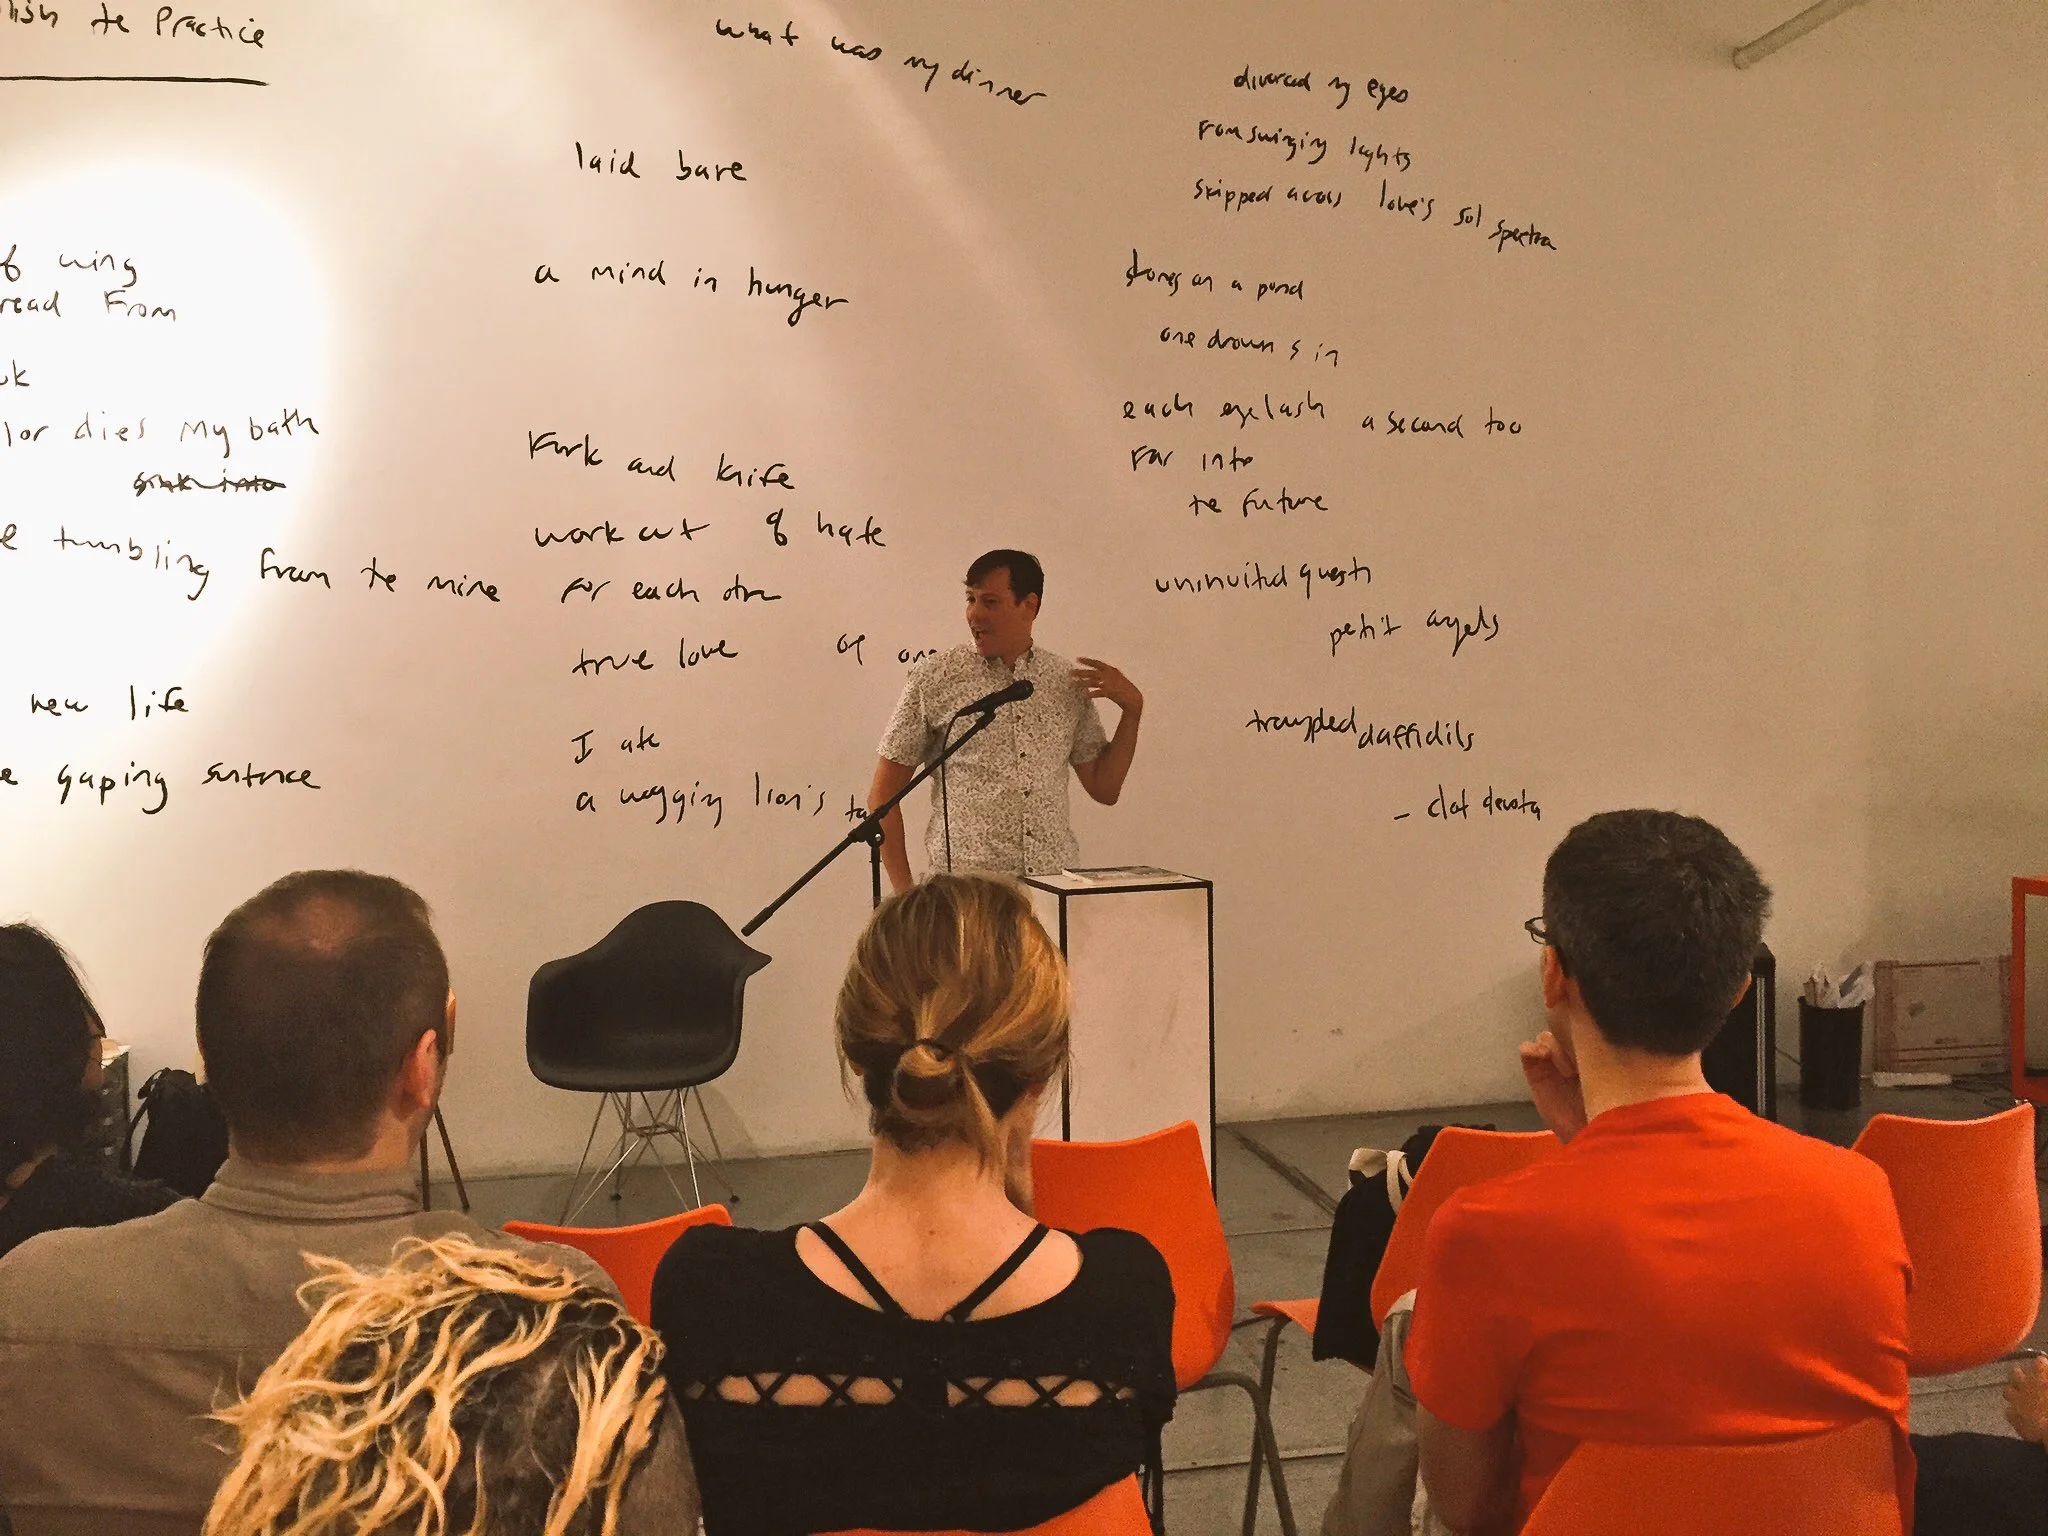 the Practice
of wing
read From
dies my bath
tumbling from the mine
new life
gaping sentence
what was my dinner
laid bare
a mind in hunger
Fork and knife
work out of hate
for each other
true love of
I ate
a wagging lion's
divorced my eyes
From swinging lights
skipped across love's sol spectra
stones on a pond
one drowns in
each eyelash a second too
Far into
the Future
uninvited guests
petit angels
trampled daffidils